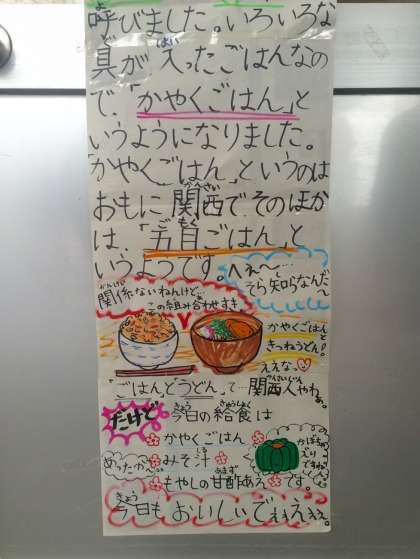 呼びました。いろいろな
具が入ったごはんなの
で、「かやくごはん」と
いうようになりました。
「かやくごはん」というのは
おもに関西で、そのほか
は、「五目ごはん」と
いうようです。へぇ〜…
そら知らなんだ〜
関係ないねんけど…
この組み合わせすき
かやくごはんと
きつねうどん!
ええなぁ
「ごはん」と「うどん」って…関西人やわぁ。
だけど
今日の給食は
かやくごはん
あったか〜
みそ汁
もやしの甘酢あえ
です。
かぼちゃ
入り
ですね
今日もおいしいでぇぇぇぇ。